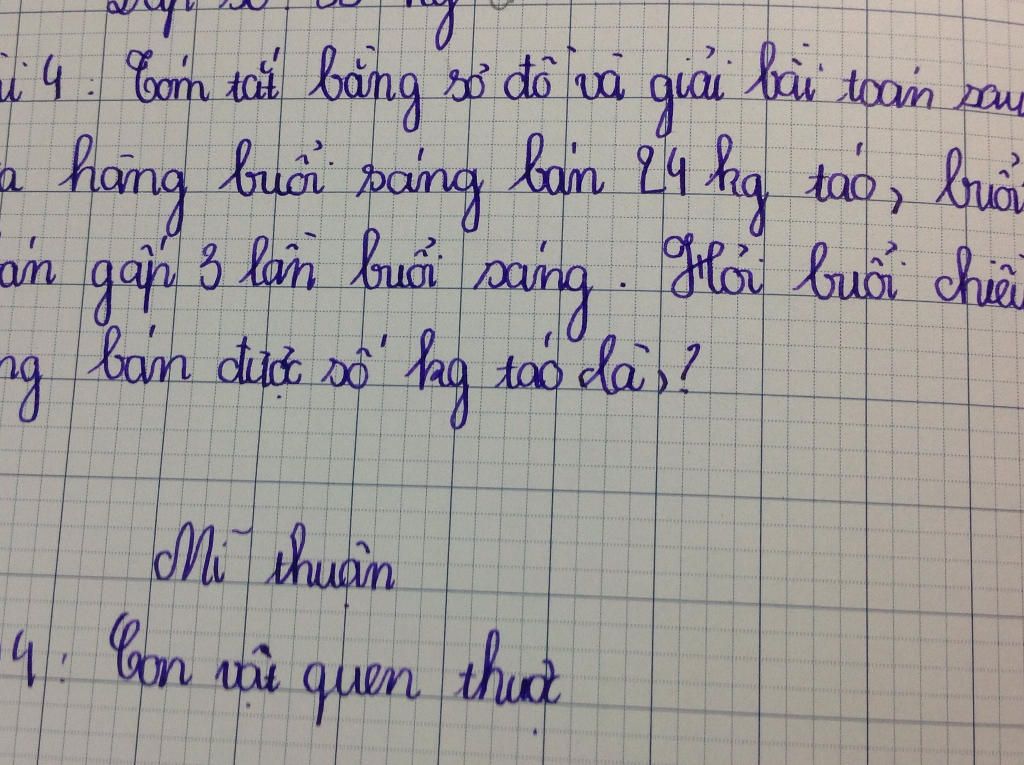 ài 4: Tóm tắt bằng sơ đồ và giải bài toán sau
a hàng buổi sáng bán 24 kg táo, buổi
án gấp 3 lần buổi sáng. Hỏi buổi chiều
ng bán được số kg táo là?
Mĩ thuận
4: Con vật quen thuộc